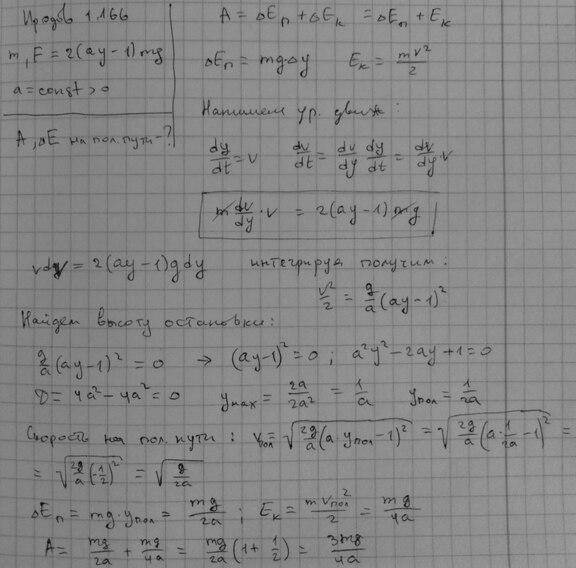 Иродов 1.166
m, F = 2(ay-1)mg
a = const > 0
A, ΔE на пол. пути - ?
A = ΔEп + ΔEк = ΔEп + Eк
ΔEп = mg·Δy    Eк = mv²/2
Напишем ур. движ:
dy/dt = v    dv/dt = dv/dy dy/dt = dv/dy·v
m dv/dy · v = 2(ay-1) mg
vdv = 2(ay-1)gdy    интегрируя получим:
v²/2 = g/a (ay-1)²
Найдем высоту остановки:
g/a (ay-1)² = 0 → (ay-1)² = 0; a²y² - 2ay + 1 = 0
D = 4a² - 4a² = 0    yмах = 2a/2a² = 1/a    yпол = 1/2a
Скорость на пол. пути: vпол = √(2g/a (a·yпол - 1)²) = √(2g/a (a·1/2a - 1)²) =
= √(2g/a (-1/2)²) = √(g/2a)
ΔEп = mg·yпол = mg/2a; Eк = mvпол²/2 = mg/4a
A = mg/2a + mg/4a = mg/2a (1 + 1/2) = 3mg/4a